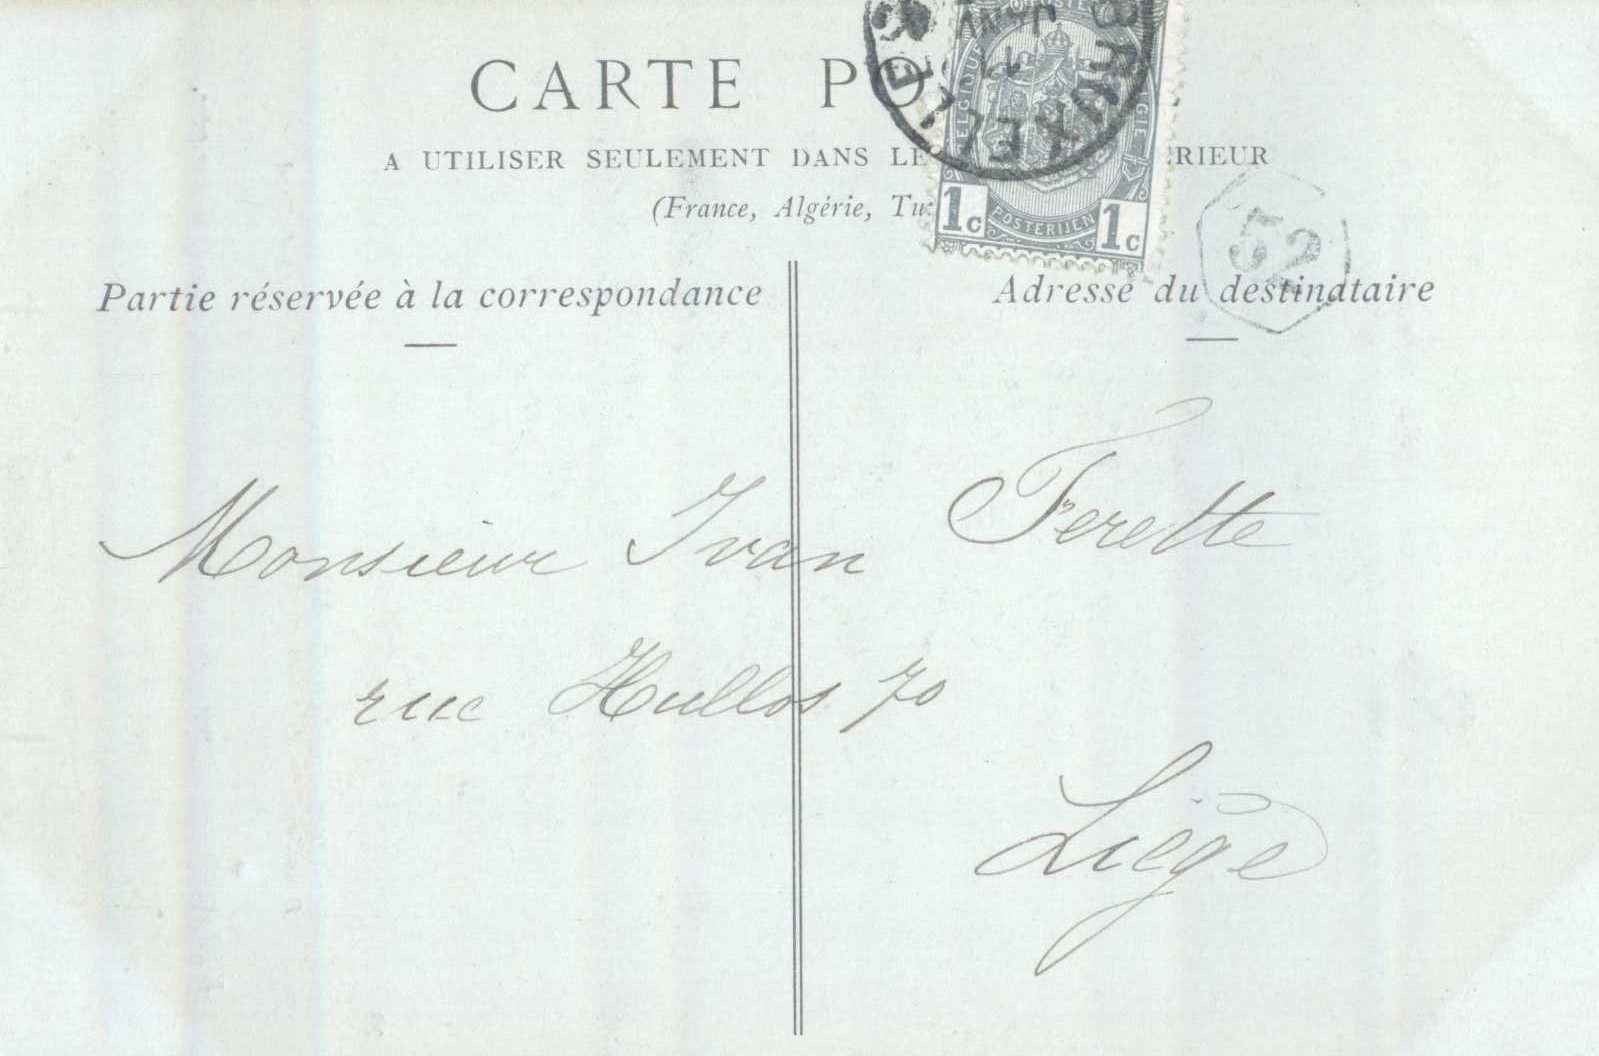 CARTE PO
A UTILISER SEULEMENT DANS LE RIEUR
(France, Algérie,
BRUXELLES
JANV
BELGIQUE
BELGIE
1c POSTERIJEN 1c
52
Partie réservée à la correspondance
Adresse du destinataire
Monsieur Ivan Ferette
rue Hullos 70
Liège